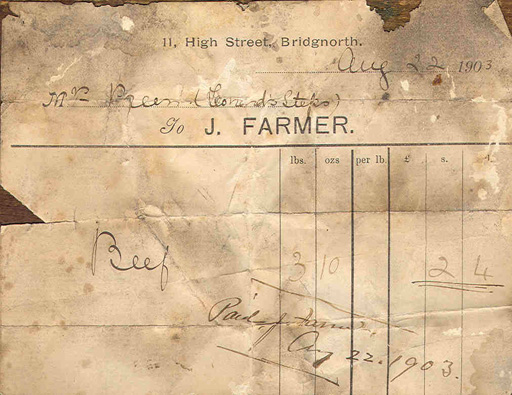 11, High Street, Bridgnorth.
Aug 22 1903
Mr Preen (Steps)
To J. FARMER.
lbs. ozs per lb. £ s. d.
Beef 3 10 2 4
Paid J. Farmer
Aug 22. 1903.